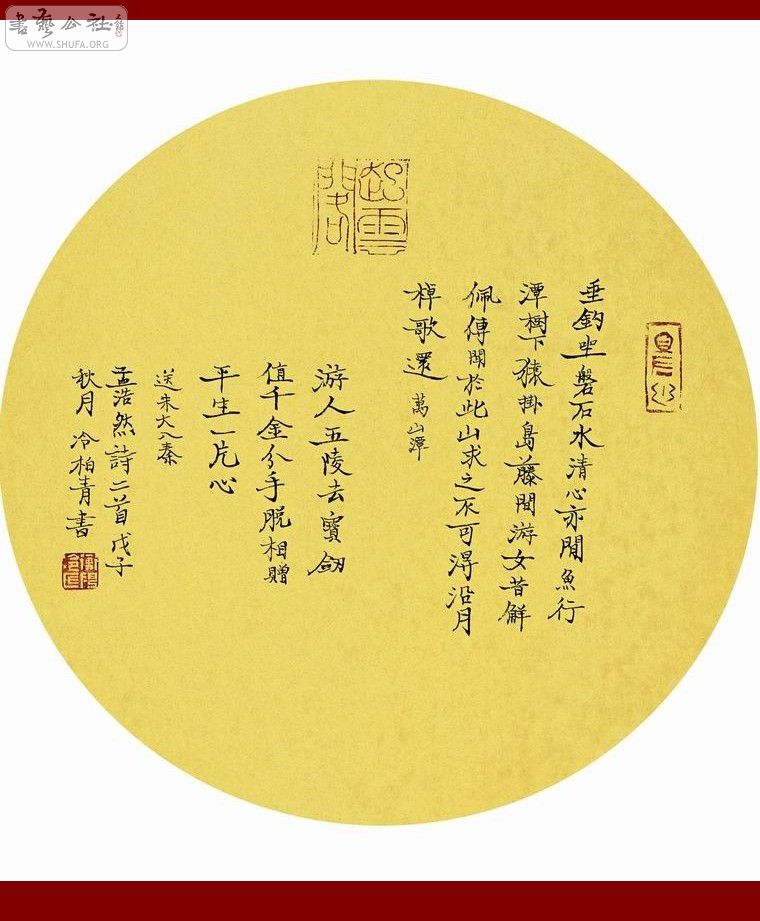 書藝公社
WWW.SHUFA.ORG
垂釣坐磐石水清心亦閒魚行
潭樹下猿掛島藤間游女昔解
佩傳聞於此山求之不可得沿月
棹歌還 萬山潭
游人五陵去寶劒
值千金分手脫相贈
平生一片心
送朱大入秦
孟浩然詩二首戊子
秋月 冷柏青書